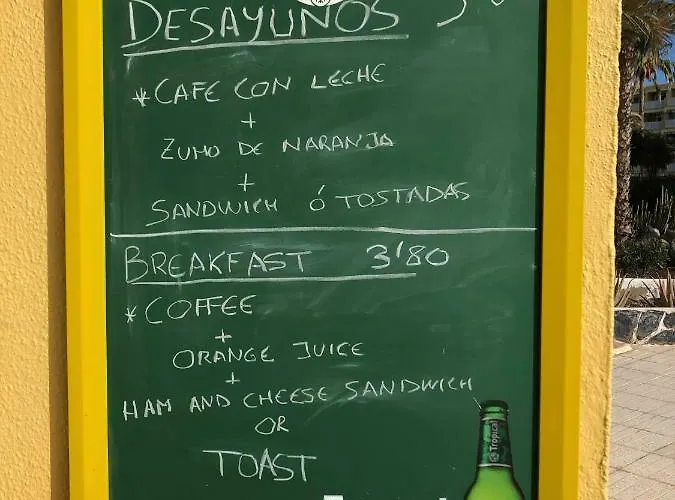 DESAYUNOS
*CAFE CON LECHE
+
ZUMO DE NARANJA
+
SANDWICH Ó TOSTADAS
BREAKFAST 3'80
*COFFEE
+
ORANGE JUICE
+
HAM AND CHEESE SANDWICH
OR
TOAST
Tropical